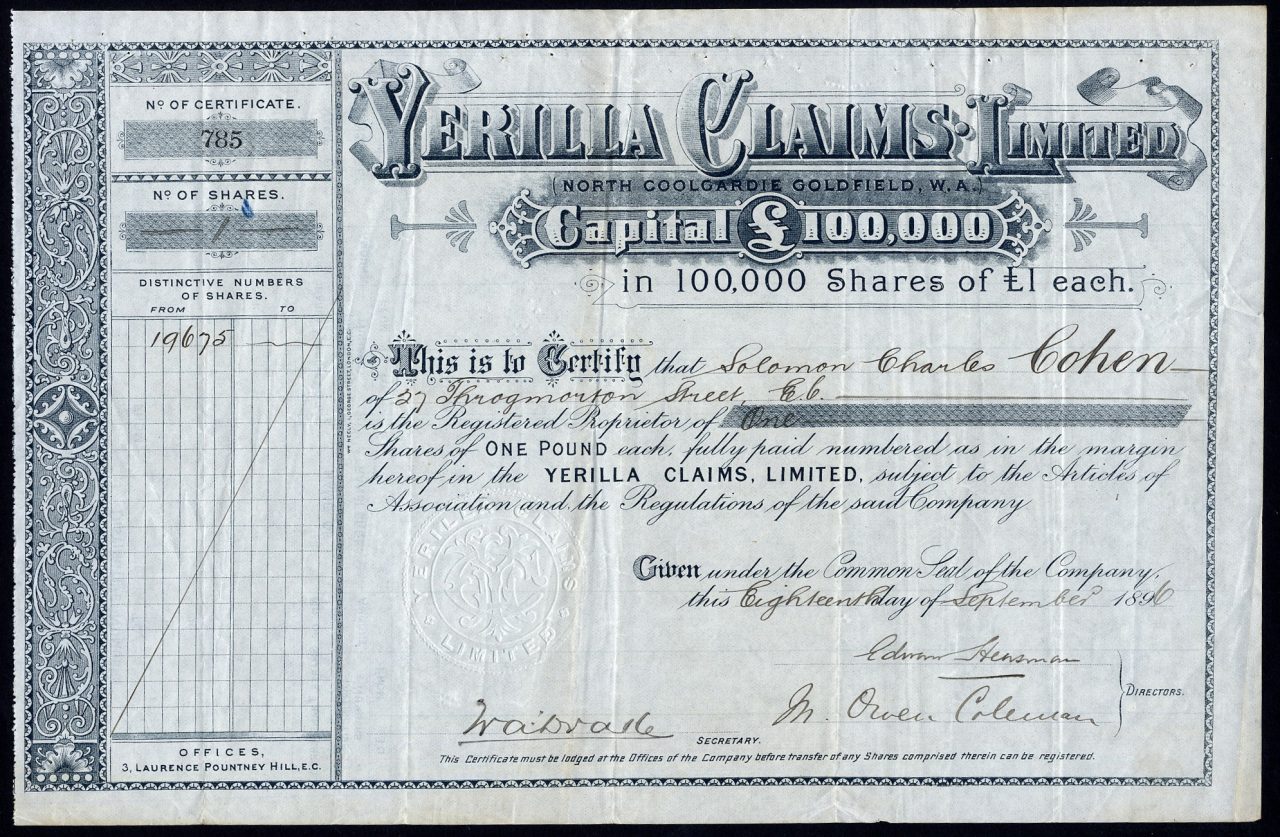 Nº OF CERTIFICATE.
785
Nº OF SHARES.
1
DISTINCTIVE NUMBERS
OF SHARES.
FROM TO
19675
OFFICES,
3, LAURENCE POUNTNEY HILL, E.C.
YERILLA CLAIMS: LIMITED
(NORTH COOLGARDIE GOLDFIELD, W.A.)
Capital £100,000
in 100,000 Shares of £1 each.
This is to Certify that Solomon Charles Cohen
of 27 Throgmorton Street, E.C.
is the Registered Proprietor of One
Shares of ONE POUND each, fully paid numbered as in the margin
hereof in the YERILLA CLAIMS, LIMITED, subject to the Articles of
Association and the Regulations of the said Company
YERILLA CLAIMS
LIMITED
Given under the Common Seal of the Company,
this Eighteenth day of September 1896
M. Owen Coleman
DIRECTORS.
SECRETARY.
This Certificate must be lodged at the Offices of the Company before transfer of any Shares comprised therein can be registered.